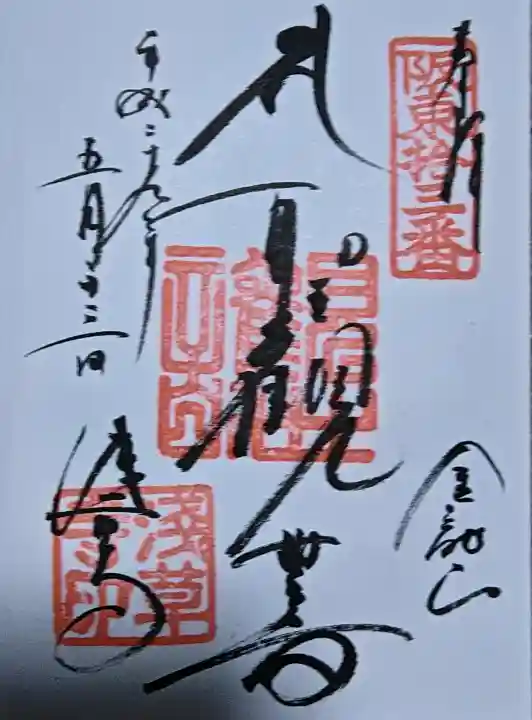 奉拝
阪東拾三番
金龍山
聖観世音
平成二十九年
五月十二日
浅草寺
浅草寺印